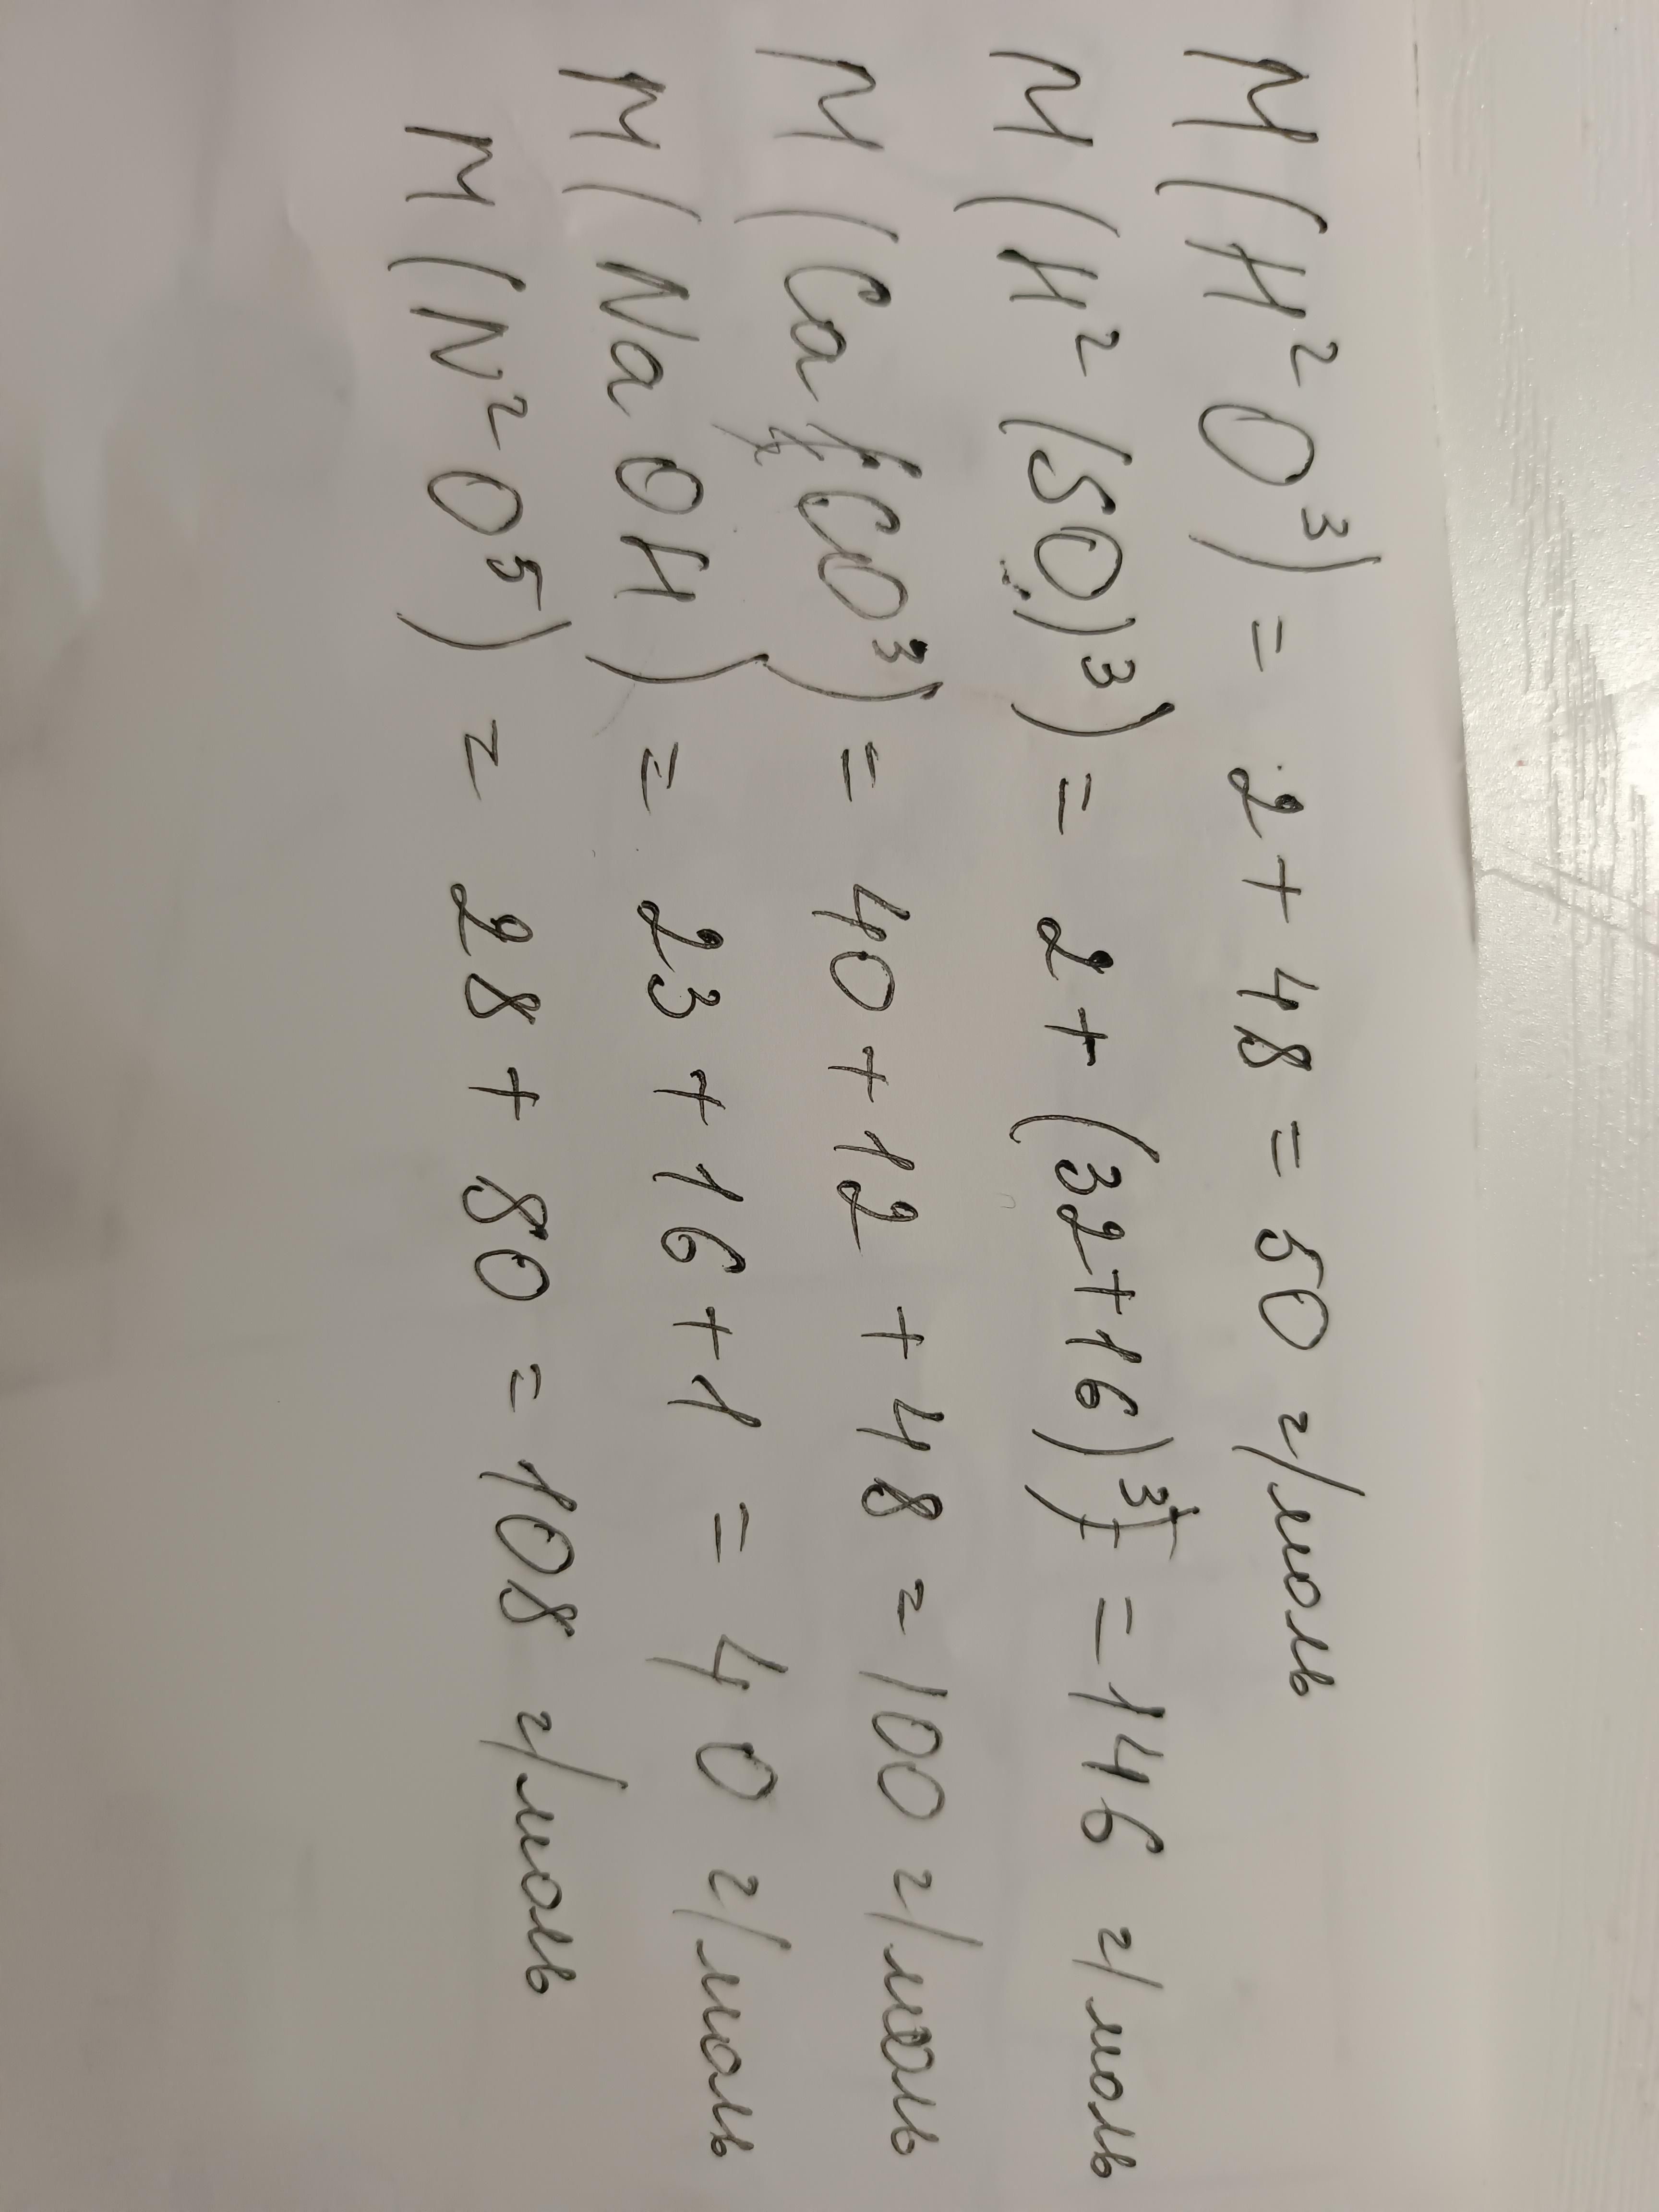 M(H²O³) = 2+48 = 50 г/моль
M(H²(SO)³) = 2+(32+16)³ = 146 г/моль
M(Ca(CO³) = 40+12+48 = 100 г/моль
M(NaOH) = 23+16+1 = 40 г/моль
M(N²O⁵) = 28+80 = 108 г/моль